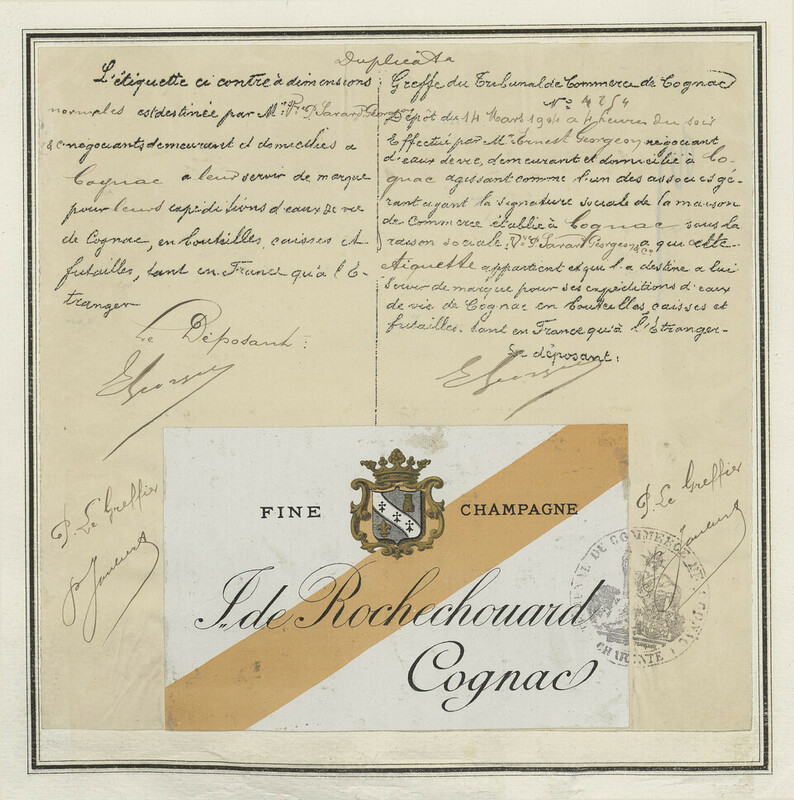 Duplicata
L'étiquette ci contre à dimensions
normales est destinée par Mr Vve P. Savard Georgeon
& Co négociants demeurant et domiciliés a
Cognac a leur servir de marque
pour leurs expéditions d'eaux de vie
de Cognac, en bouteilles, caisses et
futailles, tant en France qu'à l'E-
tranger
Le Déposant:
Greffe du Tribunal de Commerce de Cognac
No 4254
Dépôt du 14 Mars 1904 a 4 heures du soir
Effectué par Mr Ernest Georgeon négociant
d'eaux de vie, demeurant et domicilié à Co-
gnac agissant comme l'un des associés gé-
rant ayant la signature sociale de la maison
de Commerce établie à Cognac sous la
raison sociale: Vve P. Savard Georgeon & Co a qui cette
étiquette appartient et qui l'a destine a lui
servir de marque pour ses expéditions d'eaux
de vie de Cognac en bouteilles caisses et
futailles. tant en France qu'à l'Etranger-
Le déposant:
P. Le Greffier
P. Le Greffier
FINE CHAMPAGNE
J. de Rochechouard
Cognac
TRIBUNAL DE COMMERCE DE COGNAC
CHARENTE